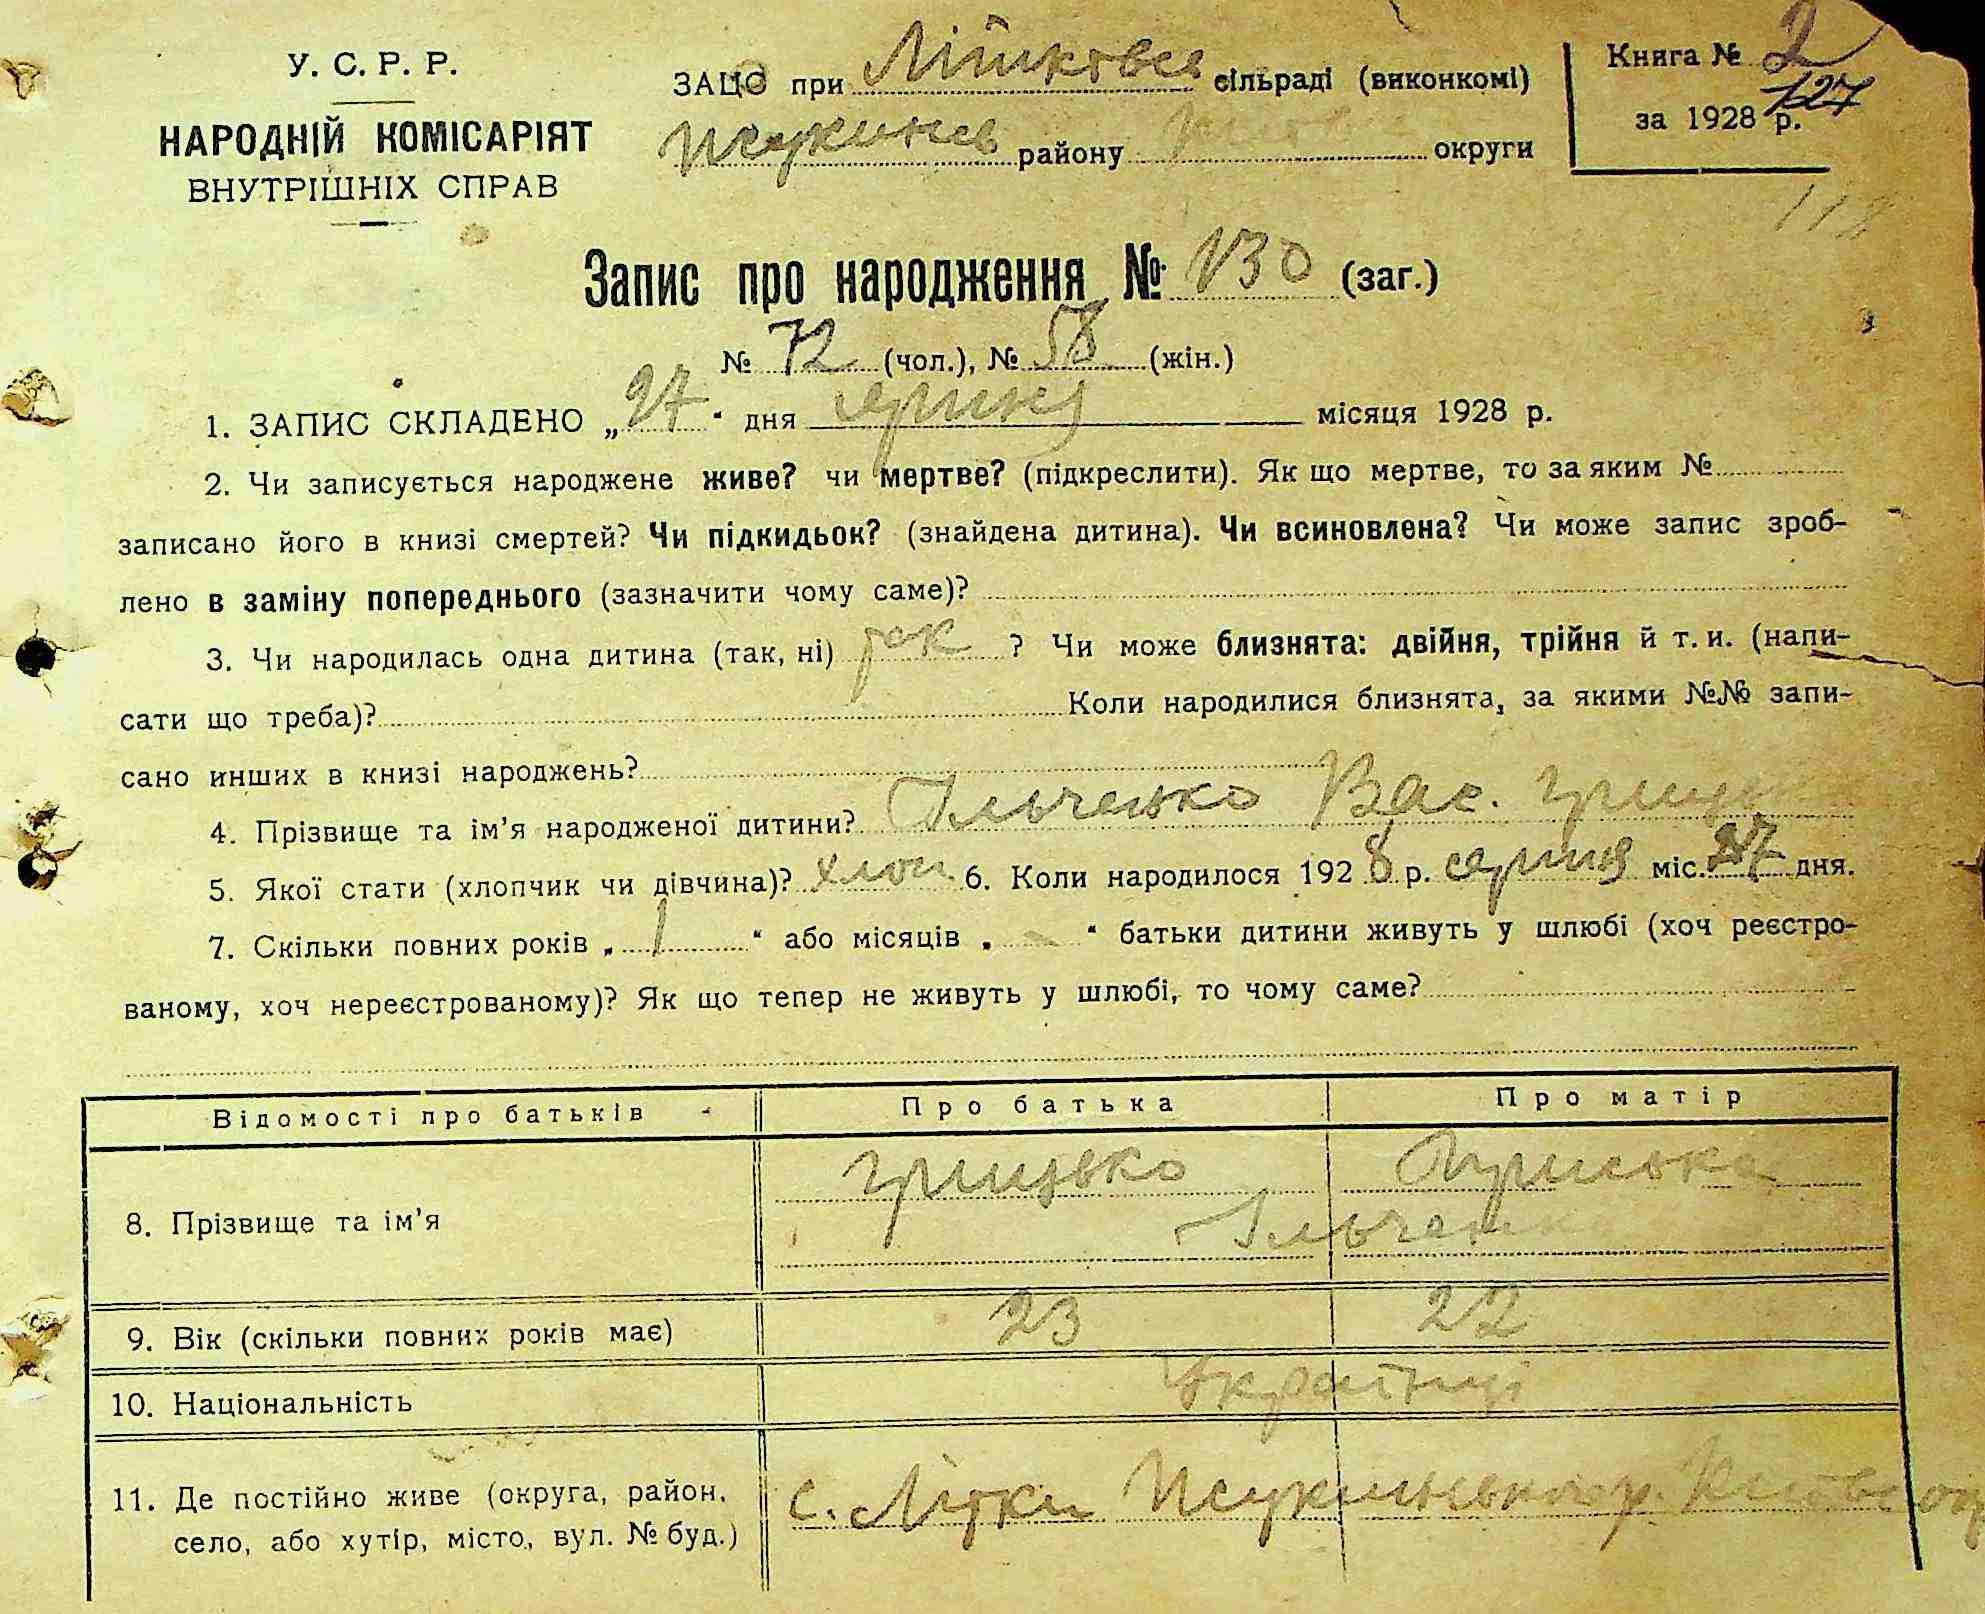 У. С. Р. Р.
НАРОДНІЙ КОМІСАРІЯТ
ВНУТРІШНІХ СПРАВ
ЗАЦС при Літковсв сільраді (виконкомі)
району округи
Книга № 2
за 1928 р. 127
118
Запис про народження № 130 (заг.)
№ 72 (чол.), № 58 (жін.)
1. ЗАПИС СКЛАДЕНО „27“ дня серпня місяця 1928 р.
2. Чи записується народжене живе? чи мертве? (підкреслити). Як що мертве, то за яким №
записано його в книзі смертей? Чи підкидьок? (знайдена дитина). Чи всиновлена? Чи може запис зроб-
лено в заміну попереднього (зазначити чому саме)?
3. Чи народилась одна дитина (так, ні) так ? Чи може близнята: двійня, трійня й т. и. (напи-
сати що треба)? Коли народилися близнята, за якими №№ запи-
сано инших в книзі народжень?
4. Прізвище та ім'я народженої дитини? Ільченко Вас. Гриць
5. Якої стати (хлопчик чи дівчина)? хлоп. 6. Коли народилося 1928 р. серпня міс. 27 дня.
7. Скільки повних років „1“ або місяців „-“ батьки дитини живуть у шлюбі (хоч реєстро-
ваному, хоч нереєстрованому)? Як що тепер не живуть у шлюбі, то чому саме?
Відомості про батьків Про батька Про матір
8. Прізвище та ім'я Грицько Приська
Ільченк
9. Вік (скільки повних років має) 23 22
10. Національність Українці
11. Де постійно живе (округа, район,
село, або хутір, місто, вул. № буд.) с. Літки